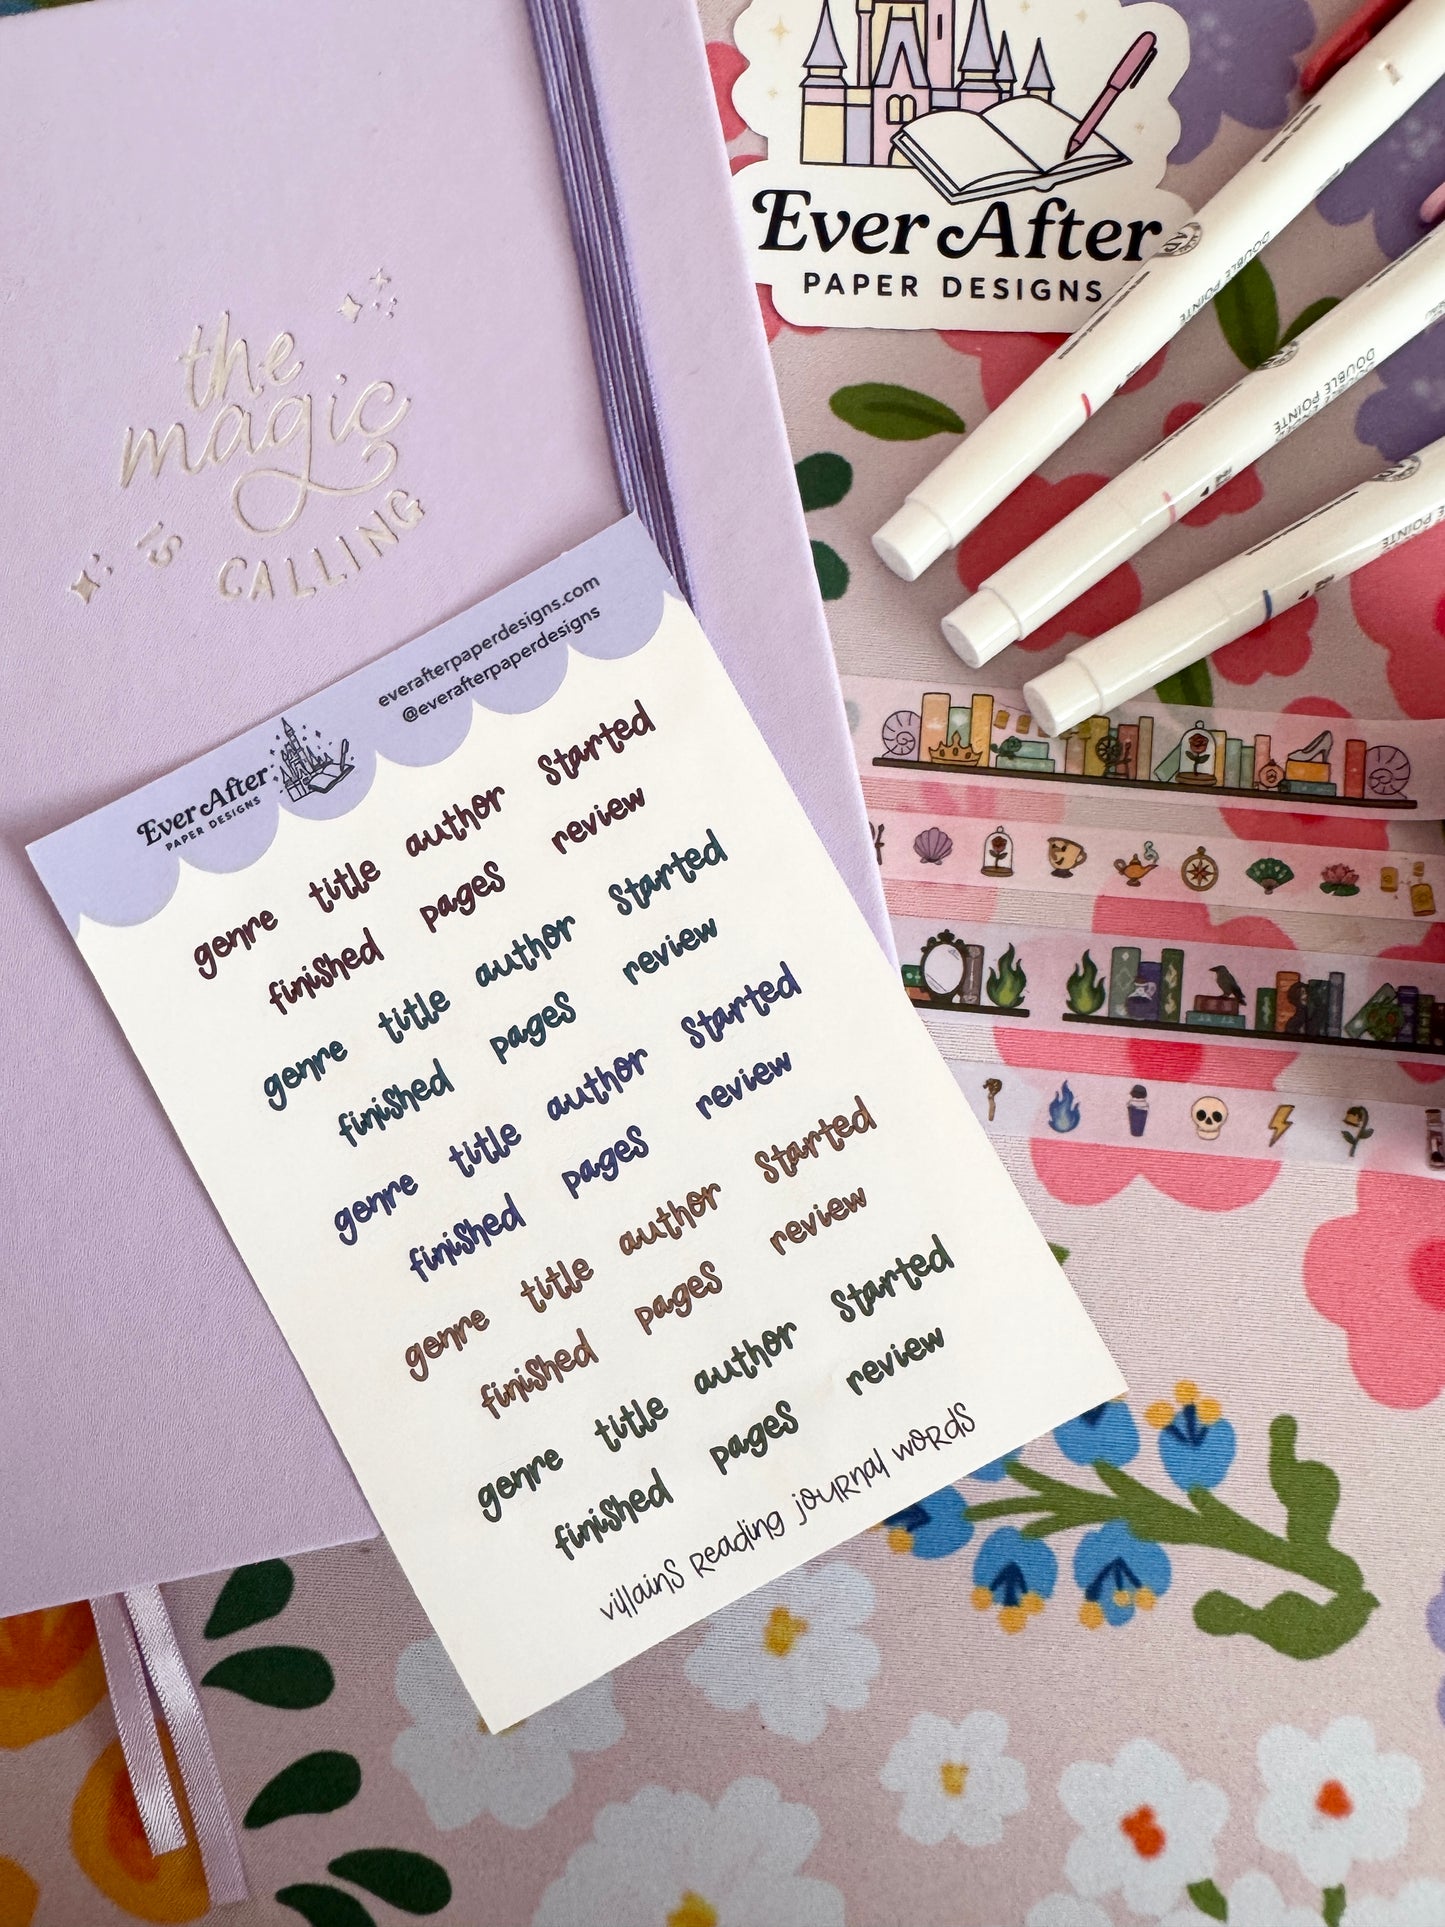 Ever After
PAPER DESIGNS
the
magic
is
CALLING
DOUBLE POINTE
DOUBLE POINTE
everafterpaperdesigns.com
@everafterpaperdesigns
Ever After
PAPER DESIGNS
genre title author started
finished pages review
genre title author started
finished pages review
genre title author started
finished pages review
genre title author started
finished pages review
genre title author started
finished pages review
villains Reading journal words